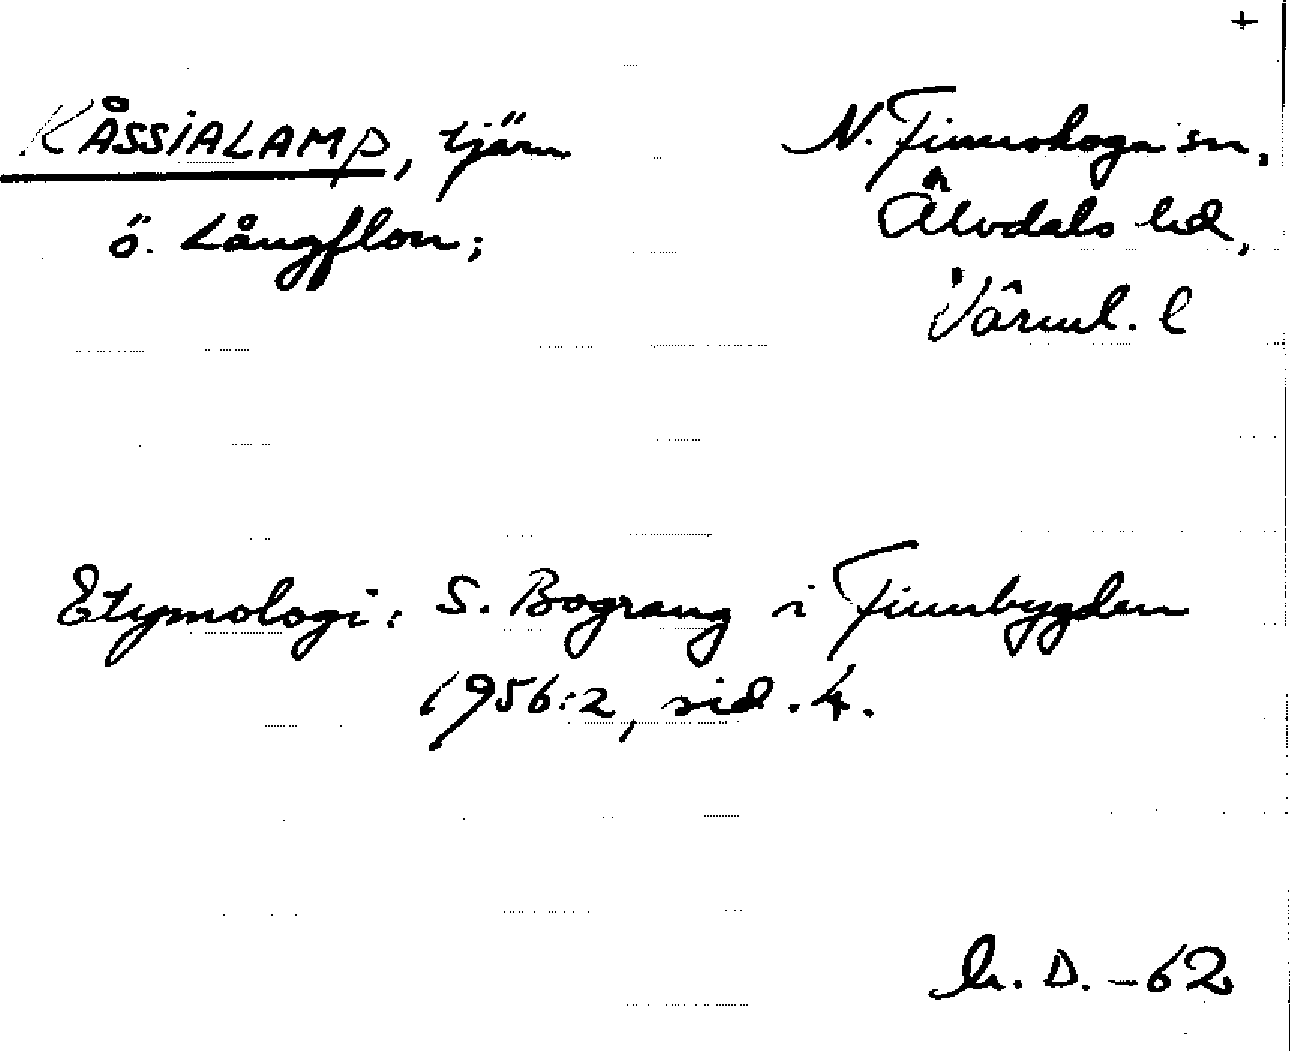 +
KÅSSIALAMP, tjärn
ö. Långflon;
N. Finnskoga sn,
Älvdals hd,
Värml. l
Etymologi: S. Bograng i Finnbygden
1956:2, sid. 4.
h. D. -62